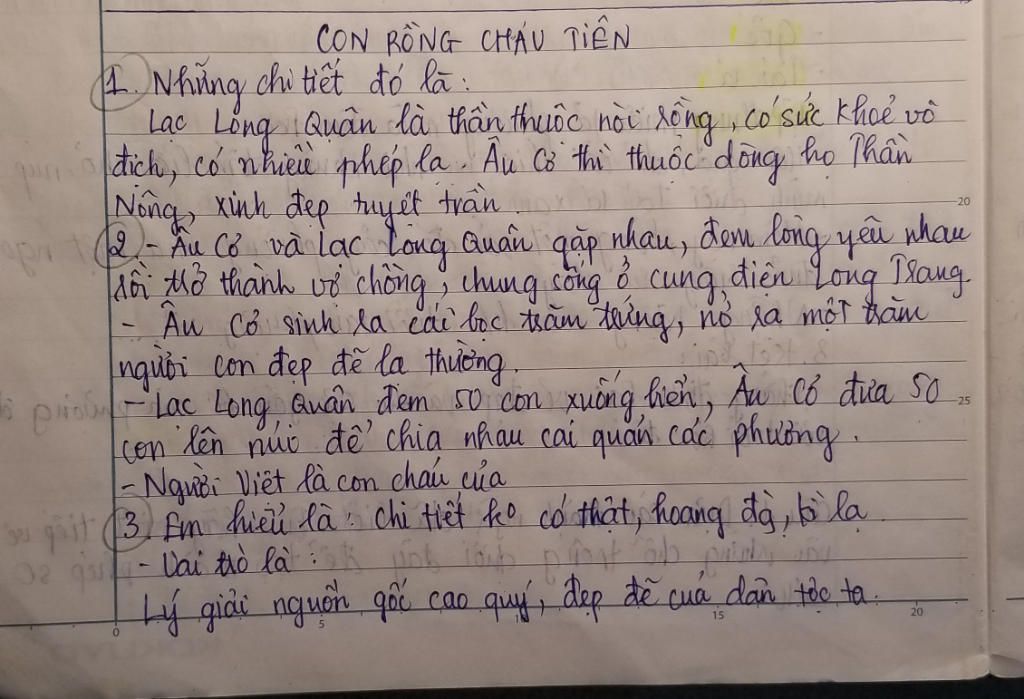 CON RỒNG CHÁU TIÊN
1. Những chi tiết đó là:
Lạc Long Quân là thần thuộc nòi rồng, có sức khoẻ vô
địch, có nhiều phép lạ. Âu Cơ thì thuộc dòng họ Thần
Nông, xinh đẹp tuyệt trần.
2 - Âu Cơ và Lạc Long Quân gặp nhau, đem lòng yêu nhau
rồi trở thành vợ chồng, chung sống ở cung điện Long Trang.
- Âu Cơ sinh ra cái bọc trăm trứng, nở ra một trăm
người con đẹp đẽ lạ thường.
- Lạc Long Quân đem 50 con xuống biển, Âu Cơ đưa 50
con lên núi để chia nhau cai quản các phương.
- Người Việt là con cháu của
3. Em hiểu là: chi tiết ko có thật, hoang đg, kì lạ
- Vai trò là:
Lý giải nguồn gốc cao quý, đẹp đẽ của dân tộc ta.